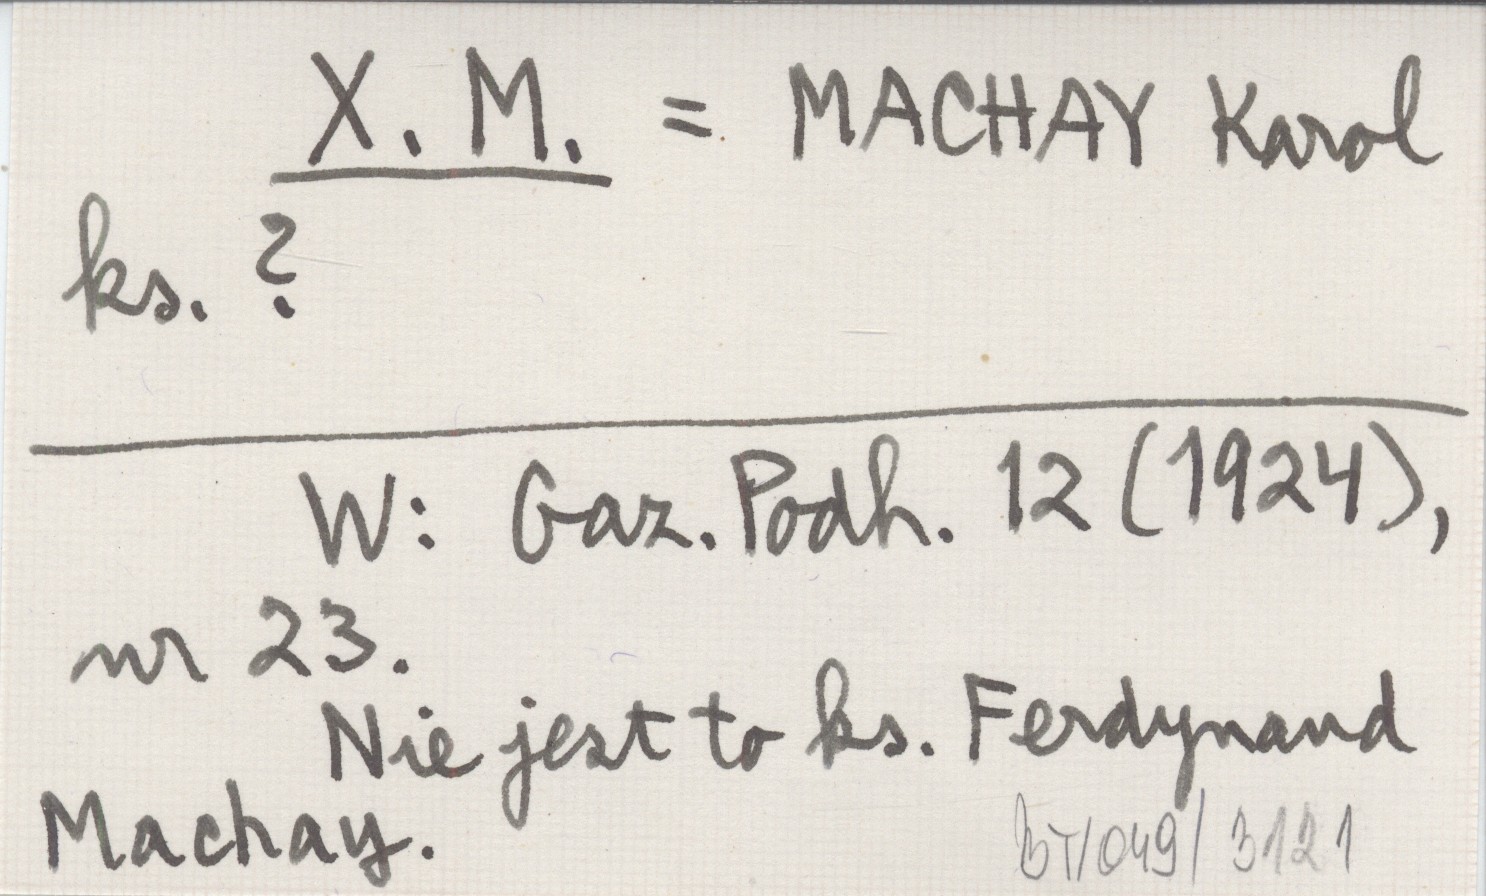 X. M. = MACHAY Karol
ks. ?
W: Gaz. Podh. 12 (1924),
nr 23.
Nie jest to ks. Ferdynand
Machay.
BT/049/3121